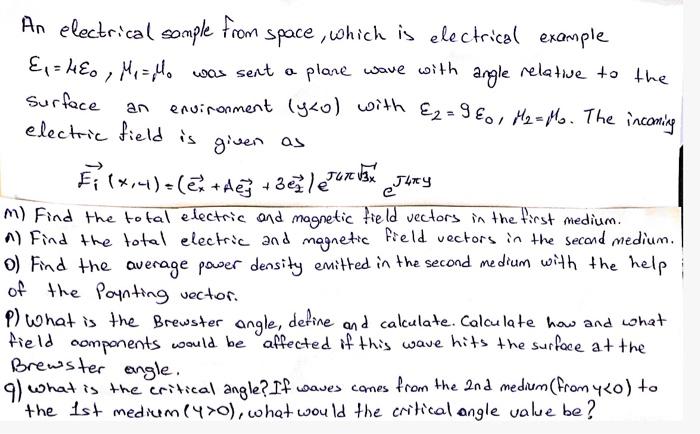 An electrical somple from space, which is electrical example
ε₁=4ε₀, μ₁=μ₀ was sent a plane wave with angle relative to the
surface an environment (y<0) with ε₂=9ε₀, μ₂=μ₀. The incoming
electric field is given as
E⃗i(x,y)=(e⃗x+Ae⃗y+3e⃗z)e^J4π√3x e^J4πy
m) Find the total electric and magnetic field vectors in the first medium.
n) Find the total electric and magnetic field vectors in the second medium.
o) Find the average power density emitted in the second medium with the help
of the Poynting vector.
P) What is the Brewster angle, define and calculate. Calculate how and what
field components would be affected if this wave hits the surface at the
Brewster angle.
q) what is the critical angle? If waves comes from the 2nd medium (from y<0) to
the 1st medium (y>0), what would the critical angle value be?